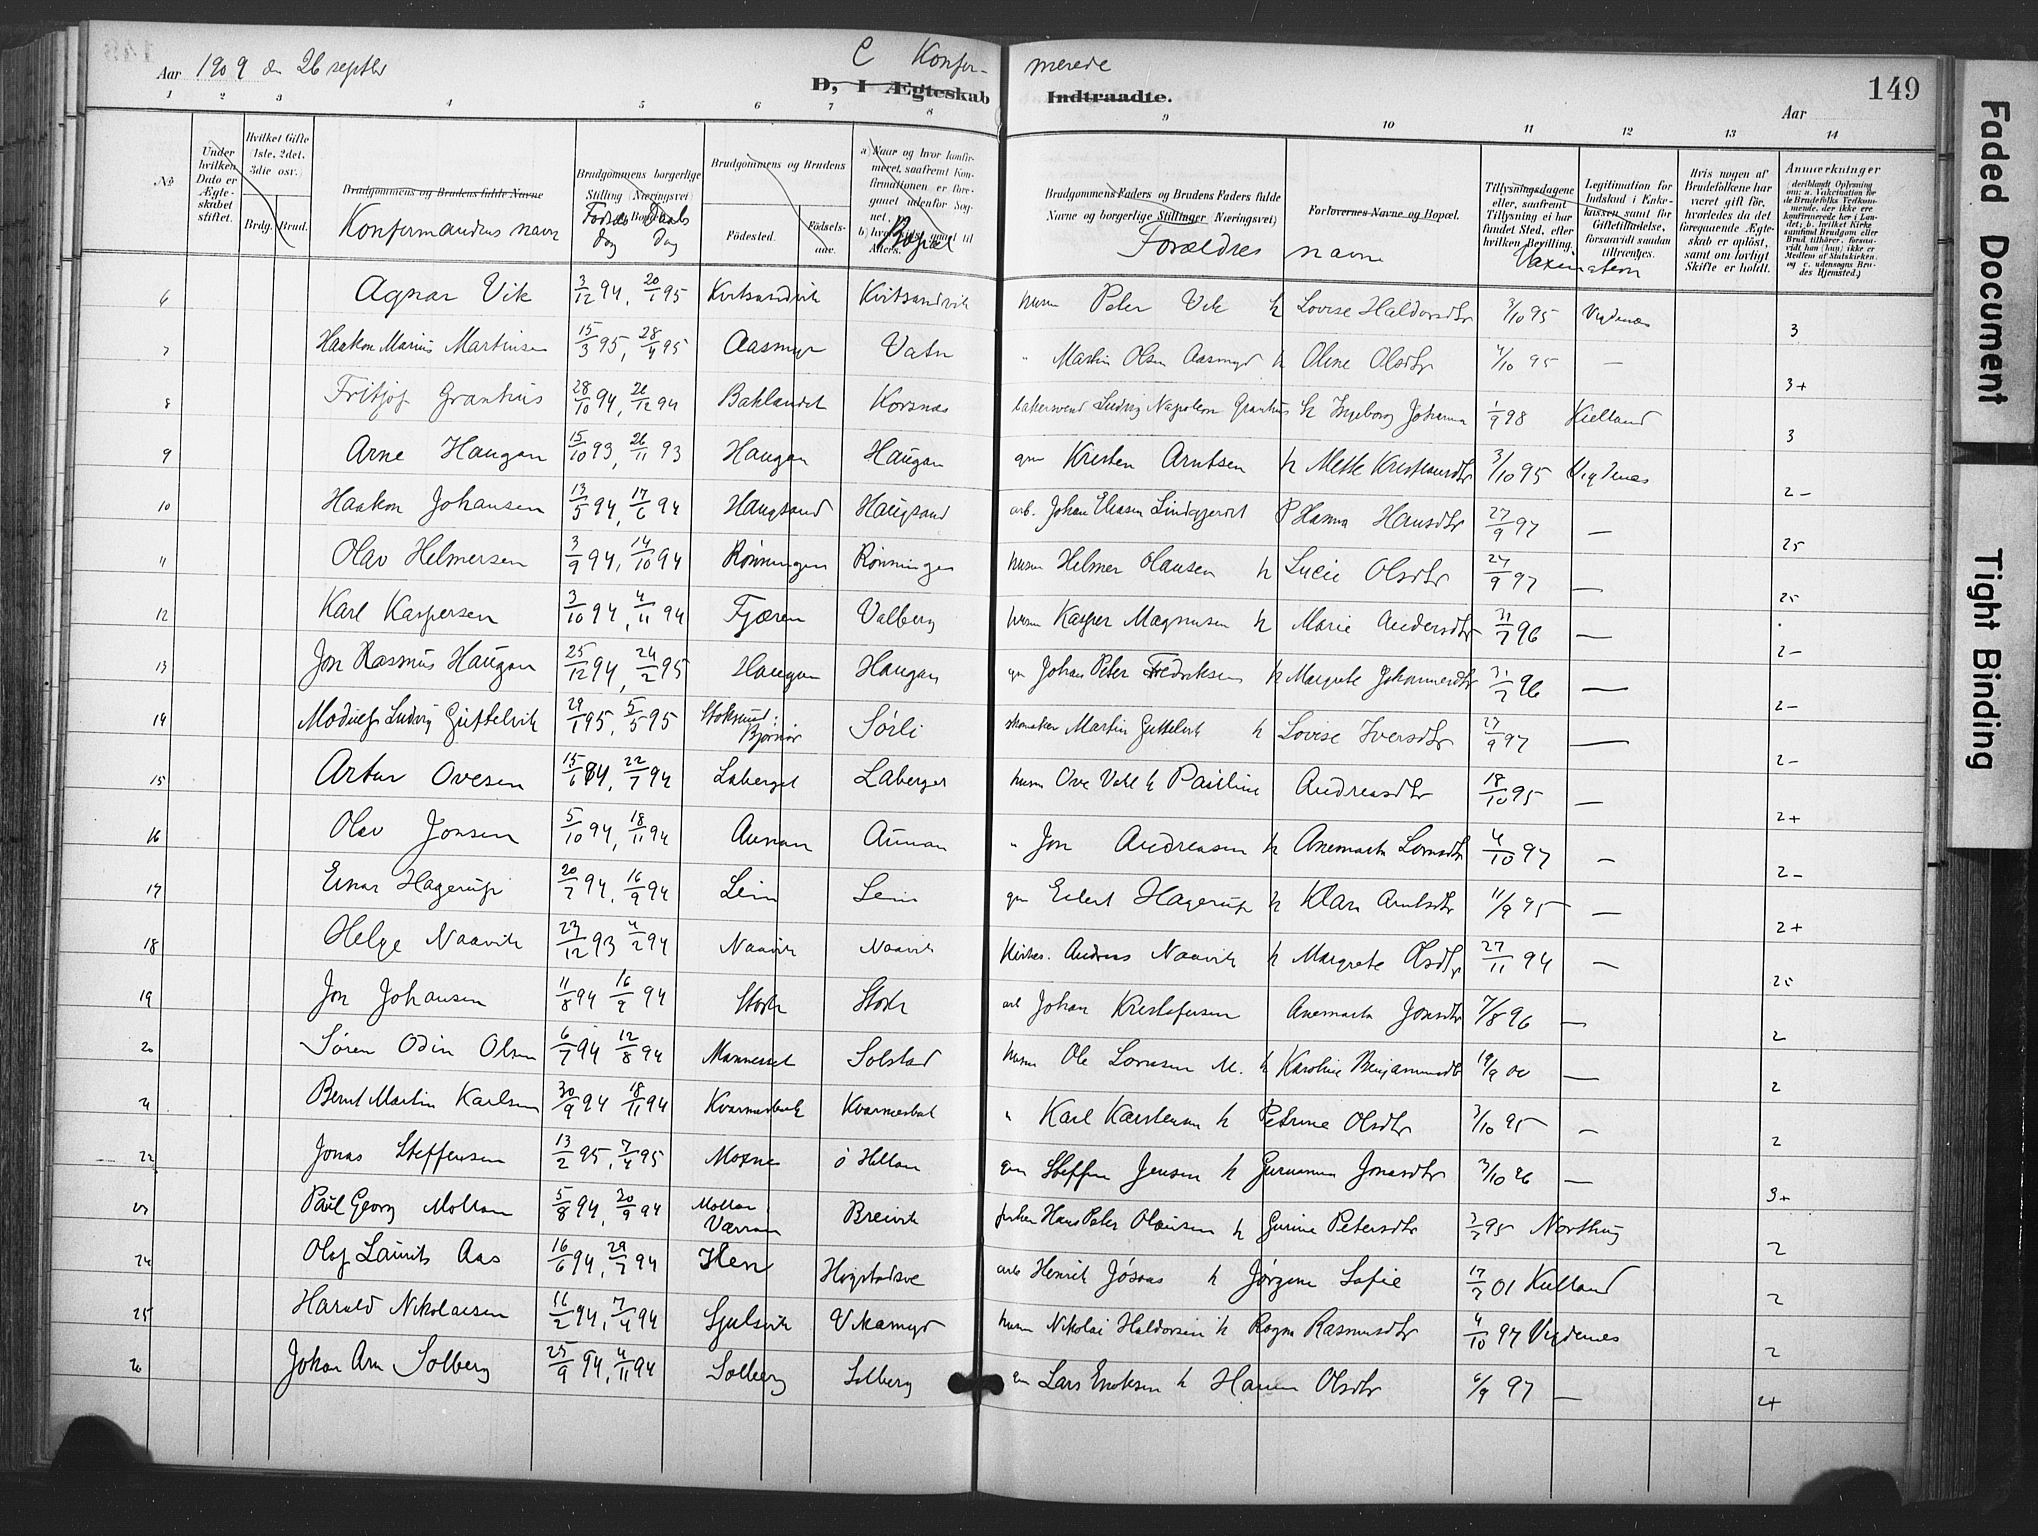 Aar 1909 den 26 septbr
C Konfir- merede
D, I Ægteskab Indtraadte.
149
Aar
1 2 3 4 5 6 7 8 9 10 11 12 13 14
№
Under hvilken Dato er Ægteskabet stiftet.
Hvilket Gifte (1ste, 2det, 3die osv.)
Brdg. Brud.
Brudgommens og Brudens fulde Navne
Konfirmandens navn
Brudgommens borgerlige Stilling (Næringsvei)
Fødselsdag Daabsdag
Brudgommens og Brudens
Fødested. Fødselsaar.
Bopæl
Brudgommens Faders og Brudens Faders fulde Navne og borgerlige Stillinger (Næringsvei)
Forlovernes Navne og Bopæl.
Forældres navne
Tillysningsdagene eller, saafremt Tillysning ei har fundet Sted, efter hvilken Bevilling.
Legitimation for Indskud i Enkekassen samt for Giftetilladelse, forsaavidt saadan tiltrænges.
Vaxination
Hvis nogen af Brudefolkene har været gift før, hvorledes da det foregaaende Ægteskab er opløst, samt om lovligt Skifte er holdt.
Anmærkninger
6 Agnar Vik 3/12 94, 20/1 95 Kvitsandvik Kvitsandvik husm Peter Vik h Lovise Haldorsdtr 3/10 95 Vigdenes 3
7 Haakon Marius Martinsen 15/3 95, 28/4 95 Aasmyr Vatn " Martin Olsen Aasmyr h Oline Olsdtr 4/10 95 — 3+
8 Fritjof Grantius 28/10 94, 26/12 94 Baklandet Korsnas bakersvend Ludvig Napoleon Grantius h Ingeborg Johanna 1/9 98 Kielland 3
9 Arne Haugan 15/10 93, 26/11 93 Haugan Haugan gm Kristen Arntsen h Mette Kristiansdtr 3/10 95 Vigdenes 2-
10 Haakon Johansen 13/5 94, 17/6 94 Haugsand Haugsand arb. Johan Eliasen P Hanna Hansdtr 27/9 97 — 25
11 Olav Helmersen 3/9 94, 14/10 94 Rønningen Rønningen husm Helmer Olausen h Lucie Olsdtr 27/9 97 — 25
12 Karl Kaspersen 3/10 94, 4/11 94 Fjæren Valberg husm Kasper Magnusen h Marie Andersdtr 31/7 96 — 2-
13 Jon Rasmus Haugan 25/12 94, 24/2 95 Haugan Haugan gm Johan Peter Fredriksen h Margrete Johannesdtr 31/7 96 — 2-
14 Modulf Ludvig Guttelvik 29/1 95, 5/5 95 Stoksund: Bjørnør Sørli skomaker Martin Guttelvik h Lovise Iversdtr 27/9 97 — 2-
15 Artur Ovesen 15/6 94, 22/7 94 Laberget Laberget husm Ove Vahl h Pauline Andreasdtr 18/10 95 — 2+
16 Olav Jonsen 5/10 94, 18/11 94 Aunan Aunan " Jon Andreasen h Anemarta Lornsdtr 4/10 97 — 2-
17 Einar Hagerup 20/7 94, 16/9 94 Lein Lein gm Eilert Hagerup h Klara Arntsdtr 11/9 95 — 2+
18 Helge Naavik 23/12 93 4/2 94 Naavik Naavik Kirkes. Andreas Naavik h Margrete Olsdtr 27/11 94 — 25
19 Jon Johansen 11/8 94 16/9 94 Stork Stork arb Johan Kristofersen Anemarta Jonsdtr 7/8 96 — 2
20 Søren Odin Olsen 6/7 94 12/8 94 Mannesset Solstad husm Ole Lornsen M. h Karoline Benjaminsdtr 19/9 00 — 2
21 Bernt Martin Karlsen 30/9 94 18/11 94 Kvarnesbak Kvarnesbak " Karl Karstensen h Petrine Olsdtr 3/10 95 — 2
22 Jonas Steffensen 13/2 95, 7/4 95 Moxnes ø Hellan gm Steffen Jensen h Gurianna Jonasdtr 3/10 96 — 3+
23 Paul Georg Moltan 5/8 94, 30/9 94 Moltan Værran Breivik fisker Hans Peter Olausen h Gurine Petersdtr 3/7 95 Northug 2
24 Olaf Laurits Aas 16/6 94, 29/7 94 Hen arb Henrik Jøsaas h Jørgine Sofie 17/7 01 Kielland 2
25 Harald Nikolaisen 11/2 94, 7/4 94 Gjulsvik Vikamyr husm Nikolai Haldorsen h Ragna Rasmusdtr 4/10 97 Vigdenes 2
26 Johan Arn Solberg 25/9 94, 4/11 94 Solberg Solberg gm Lars Enoksen h Hanna Olsdtr 6/9 97 — 2+
Faded Document
Tight Binding